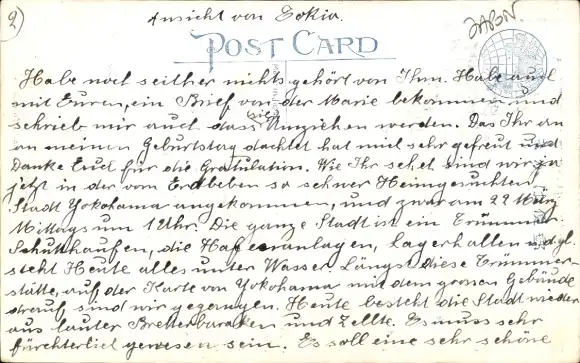 2)
Ansicht von Tokia.
JAPAN.
POST CARD
Habe noch seither nichts gehört von Ihm. Habe auch
mit Euren, ein Brief von der Marie bekommen und
schrieb mir auch dass sie Umziehen werden. Das Ihr an
an meinen Geburtstag dachtet hat mich sehr gefreut und
Danke Euch für die Gratulation. Wie Ihr sehet sind wir ja
jetzt in der vom Erdbeben so schwer Heimgesuchten
Stadt Yokohama angekommen, und zwar am 22 März
Mittags um 1 Uhr. Die ganze Stadt ist ein Trümmer
Schutthaufen, die Hafenanlagen, lagerhallen u.dgl.
steht Heute alles unter Wasser. Längst diese Trümmer-
stätte, auf der Karte von Yokohama mit dem grossen Gebäude
drauf sind wir gegangen. Heute besteht die Stadt wieder
aus lauter Bretterbaraken und Zellte. Es muss sehr
fürchterlich gewesen sein. Es soll eine sehr schöne